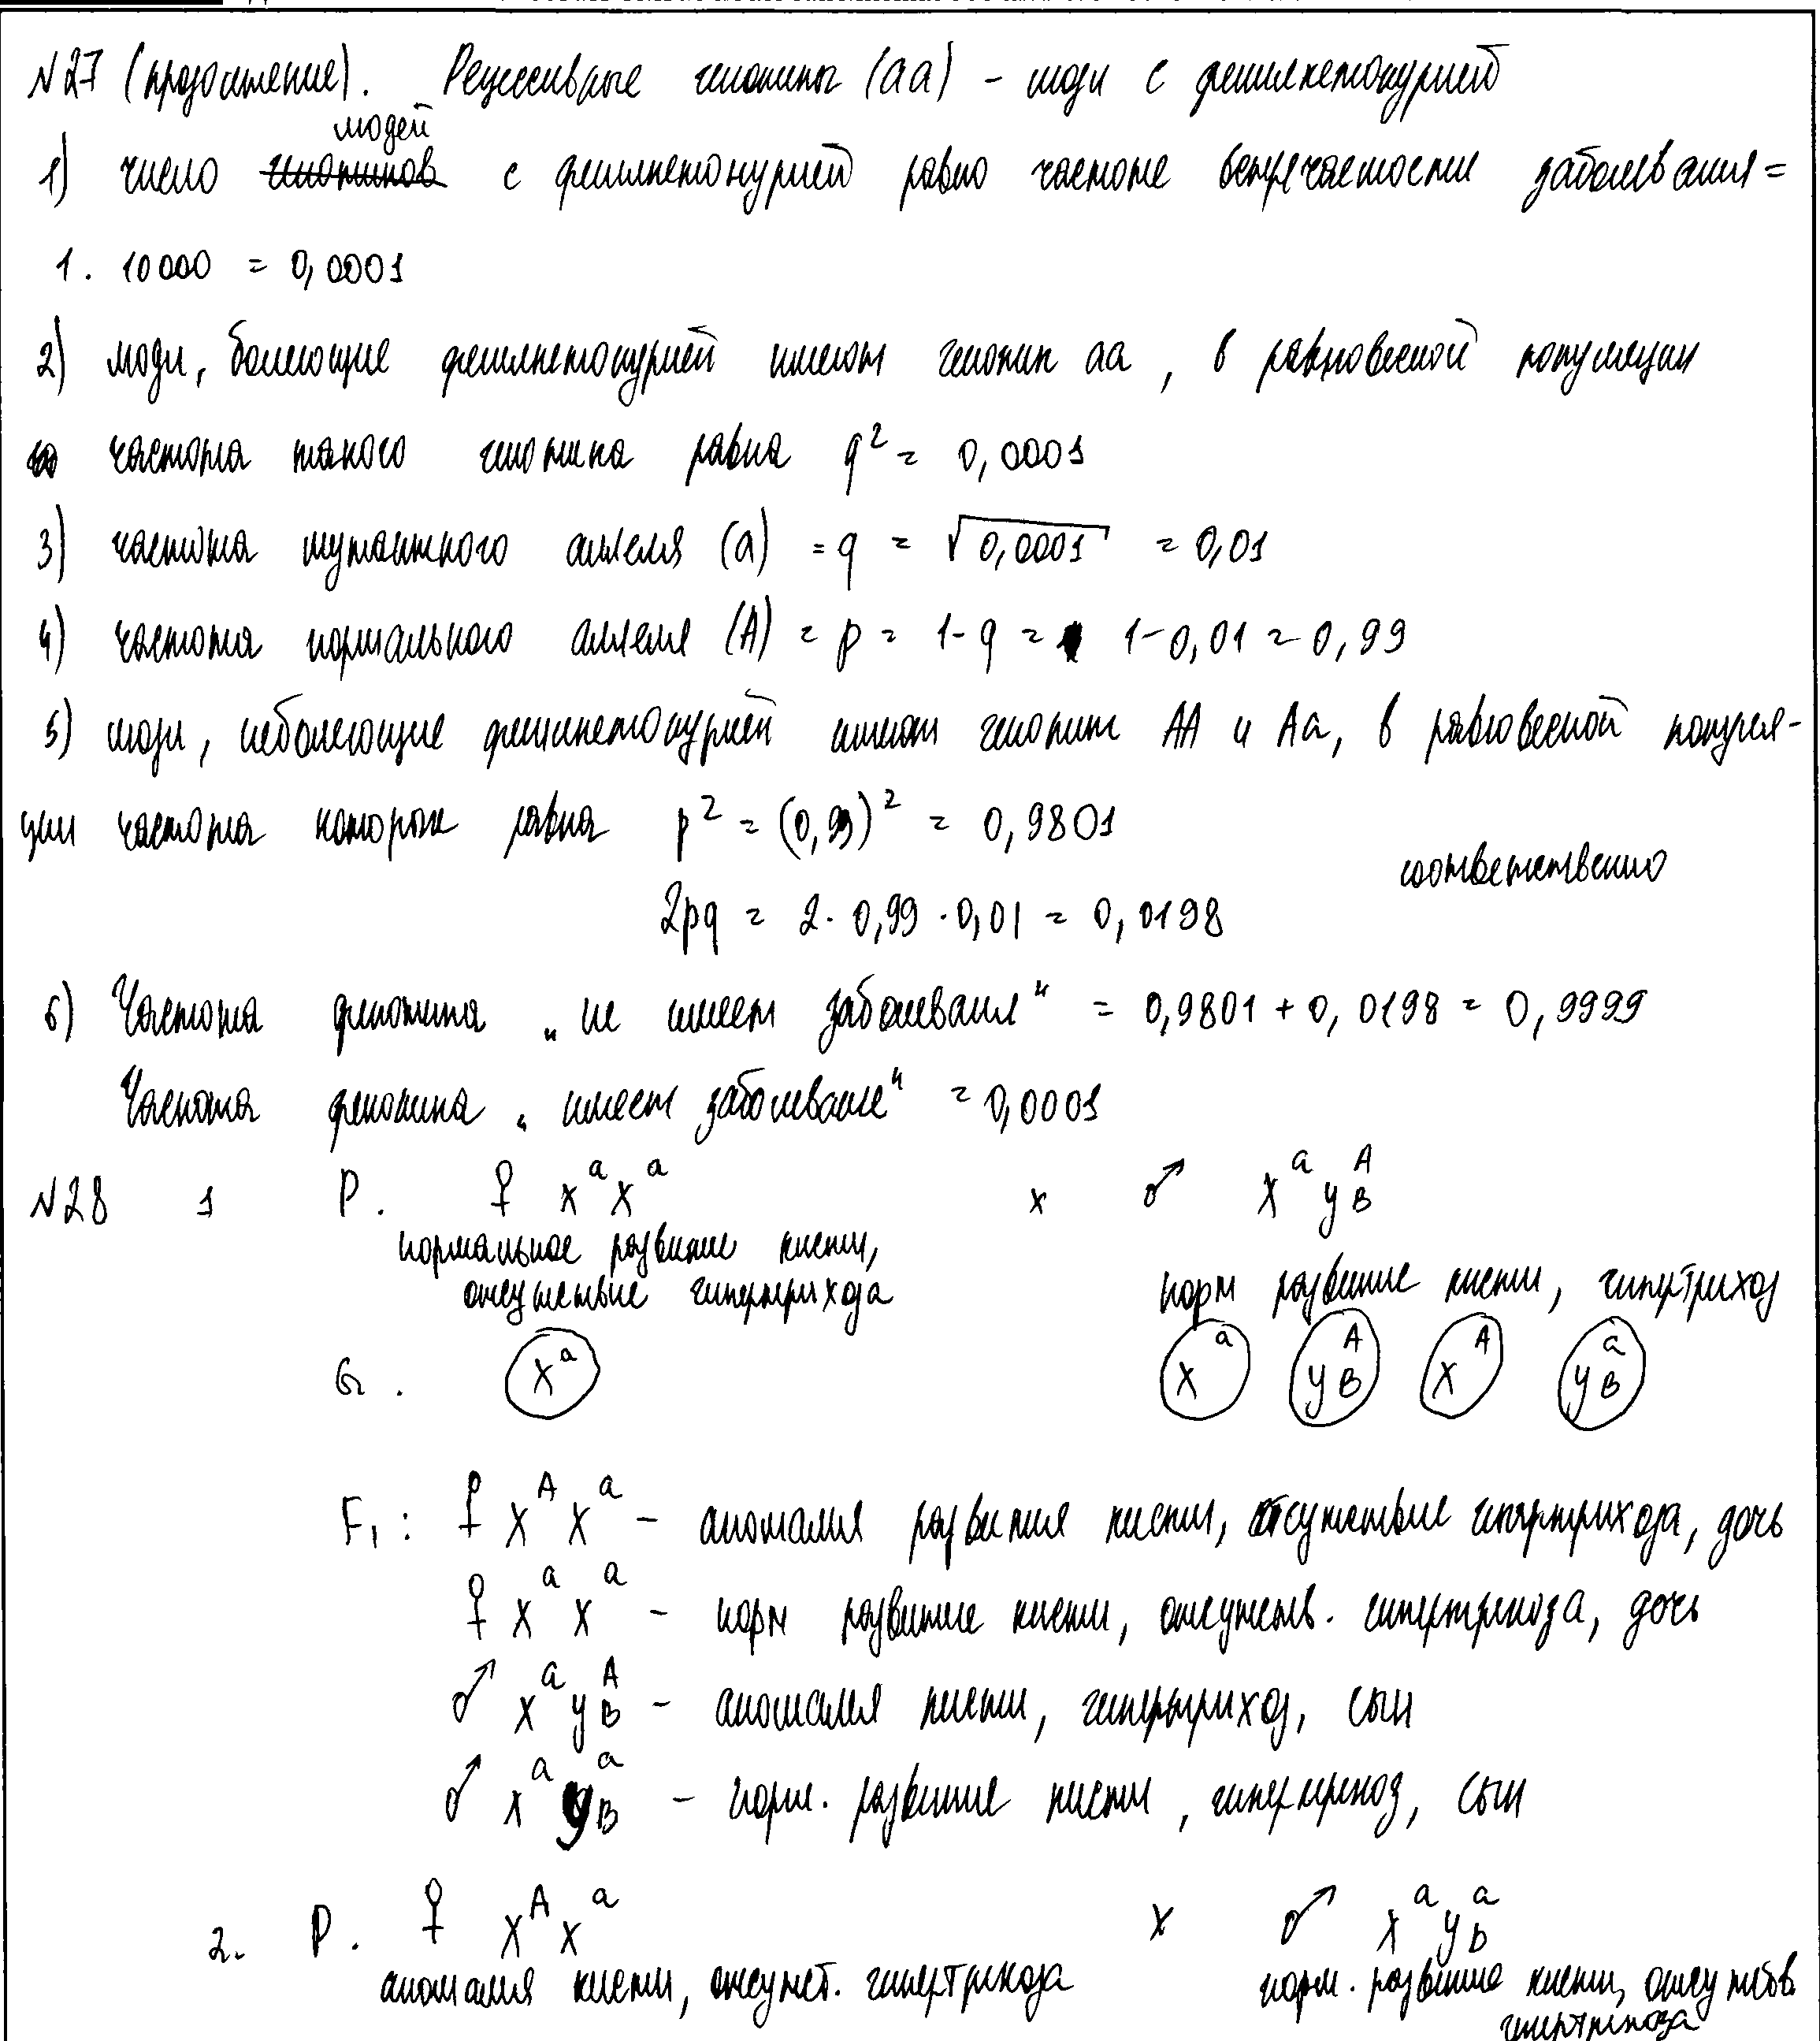 N27 (продолжение). Рецессивные генотипы (аа) - люди с фенилкетонурией
людей
1) число генотипов с фенилкетонурией равно частоте встречаемости заболевания =
1. 10000 = 0,0001
2) люди, болеющие фенилкетонурией имеют генотип аа, в равновесной популяции
частота такого генотипа равна q² = 0,0001
3) частота мутантного аллеля (а) = q = √0,0001 = 0,01
4) частота нормального аллеля (А) = p = 1-q = 1-0,01 = 0,99
5) люди, неболеющие фенилкетонурией имеют генотип АА и Аа, в равновесной популя-
ции частота которых равна p² = (0,99)² = 0,9801
соответственно
2pq = 2·0,99·0,01 = 0,0198
6) Частота фенотипа „не имеет заболевания" = 0,9801 + 0,0198 = 0,9999
Частота фенотипа „имеет заболевание" = 0,0001
N28 1 P. ♀ XᵃXᵃ x ♂ Xᵃ Y_B^A
нормальное развитие кисти,
отсутствие гипертрихоза
норм развитие кисти, гипертрихоз
G. Xᵃ Xᵃ Y_B^A X^A Y_B^a
F₁: ♀ X^A Xᵃ - аномалия развития кисти, отсутствие гипертрихоза, дочь
♀ Xᵃ Xᵃ - норм развитие кисти, отсутств. гипертрихоза, дочь
♂ Xᵃ Y_B^A - аномалия кисти, гипертрихоз, сын
♂ Xᵃ Y_B^a - норм. развитие кисти, гипертрихоз, сын
2. P. ♀ X^A Xᵃ x ♂ Xᵃ Y_b^a
аномалия кисти, отсутст. гипертрихоза
норм. развитие кисти, отсутств.
гипертрихоза